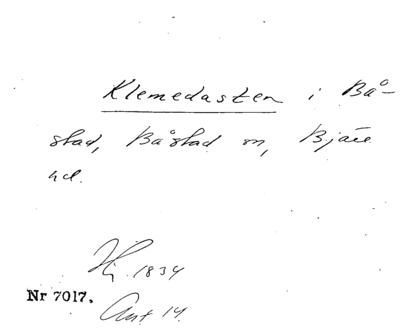 Klemedasten i Bå-
stad, Båstad sn, Bjäre
hd.
1834
Nr 7017.
Ant 14.